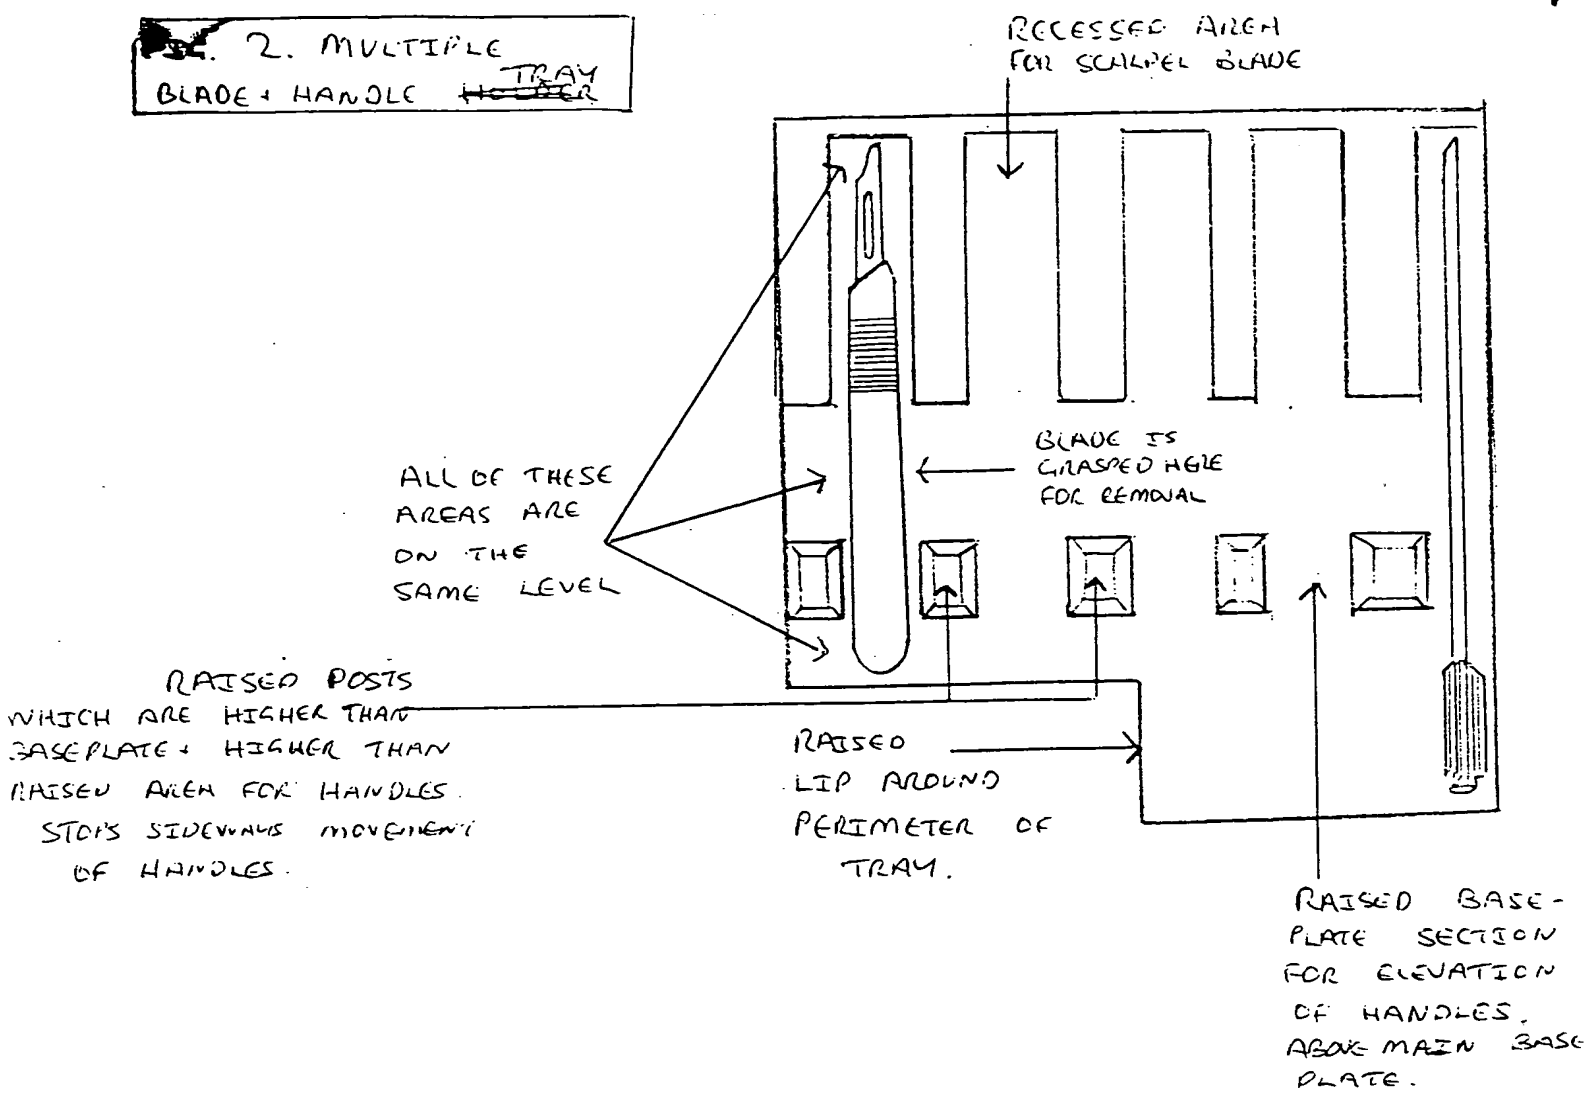 FIG. 2. MULTIPLE
BLADE + HANDLE HOLDER TRAY
RECESSED AREA
FOR SCALPEL BLADE
BLADE IS
GRASPED HERE
FOR REMOVAL
ALL OF THESE
AREAS ARE
ON THE
SAME LEVEL
RAISED POSTS
WHICH ARE HIGHER THAN
BASEPLATE + HIGHER THAN
RAISED AREA FOR HANDLES.
STOPS SIDEWAYS MOVEMENT
OF HANDLES.
RAISED
LIP AROUND
PERIMETER OF
TRAY.
RAISED BASE-
PLATE SECTION
FOR ELEVATION
OF HANDLES.
ABOVE MAIN BASE
PLATE.